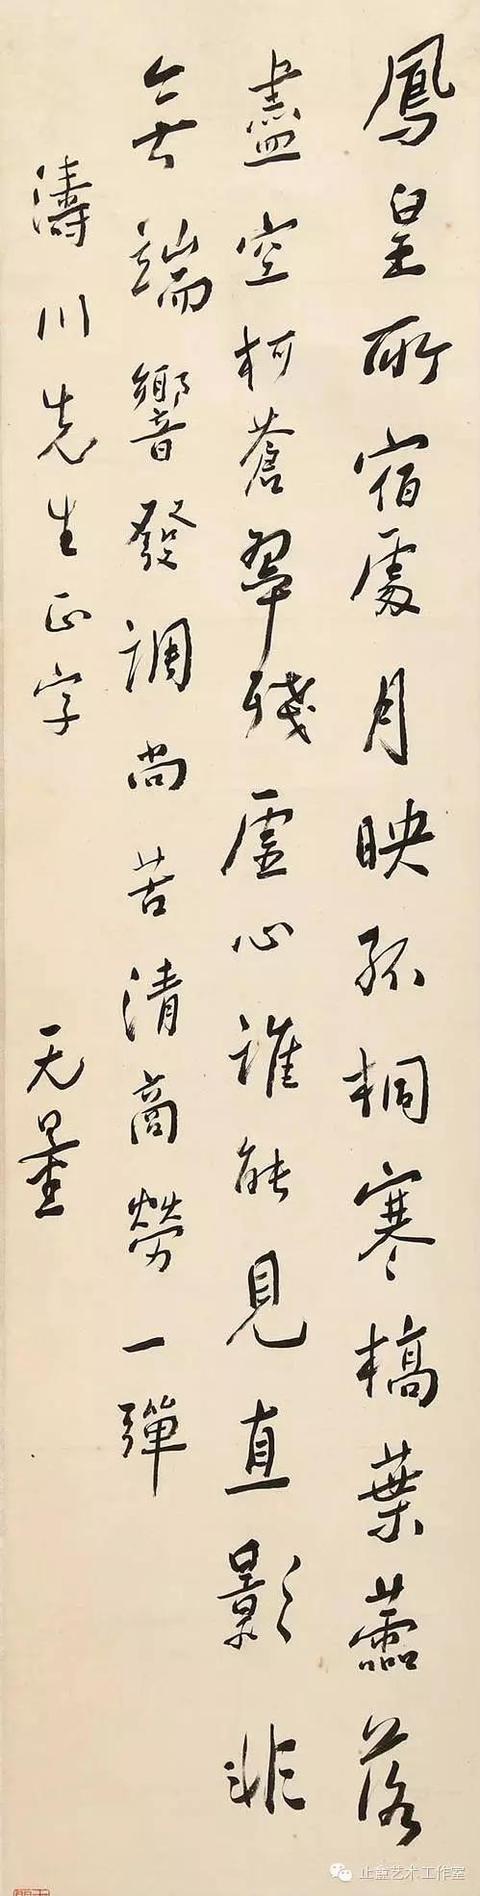 鳳皇所宿處月映孤桐寒槁葉蕾落
盡空柯蒼翠殘虛心誰能見直影非
無端響發調尚苦清商勞一彈
濤川先生正字
无量
止畫艺术工作室